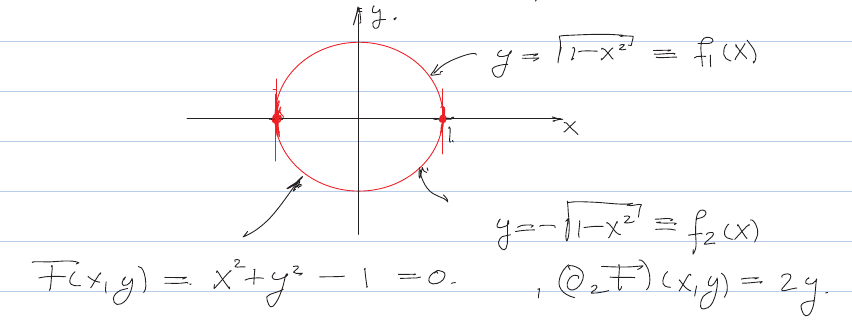 y.
y = √(1-x²) ≡ f₁(x)
x
1.
y = -√(1-x²) ≡ f₂(x)
F(x,y) = x² + y² - 1 = 0. , (∂₂F)(x,y) = 2y.